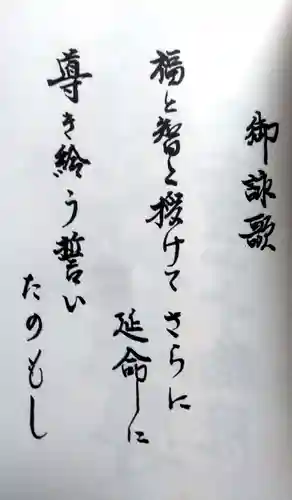 御詠歌
福と智と授けてさらに
延命に
導き給う誓い
たのもし